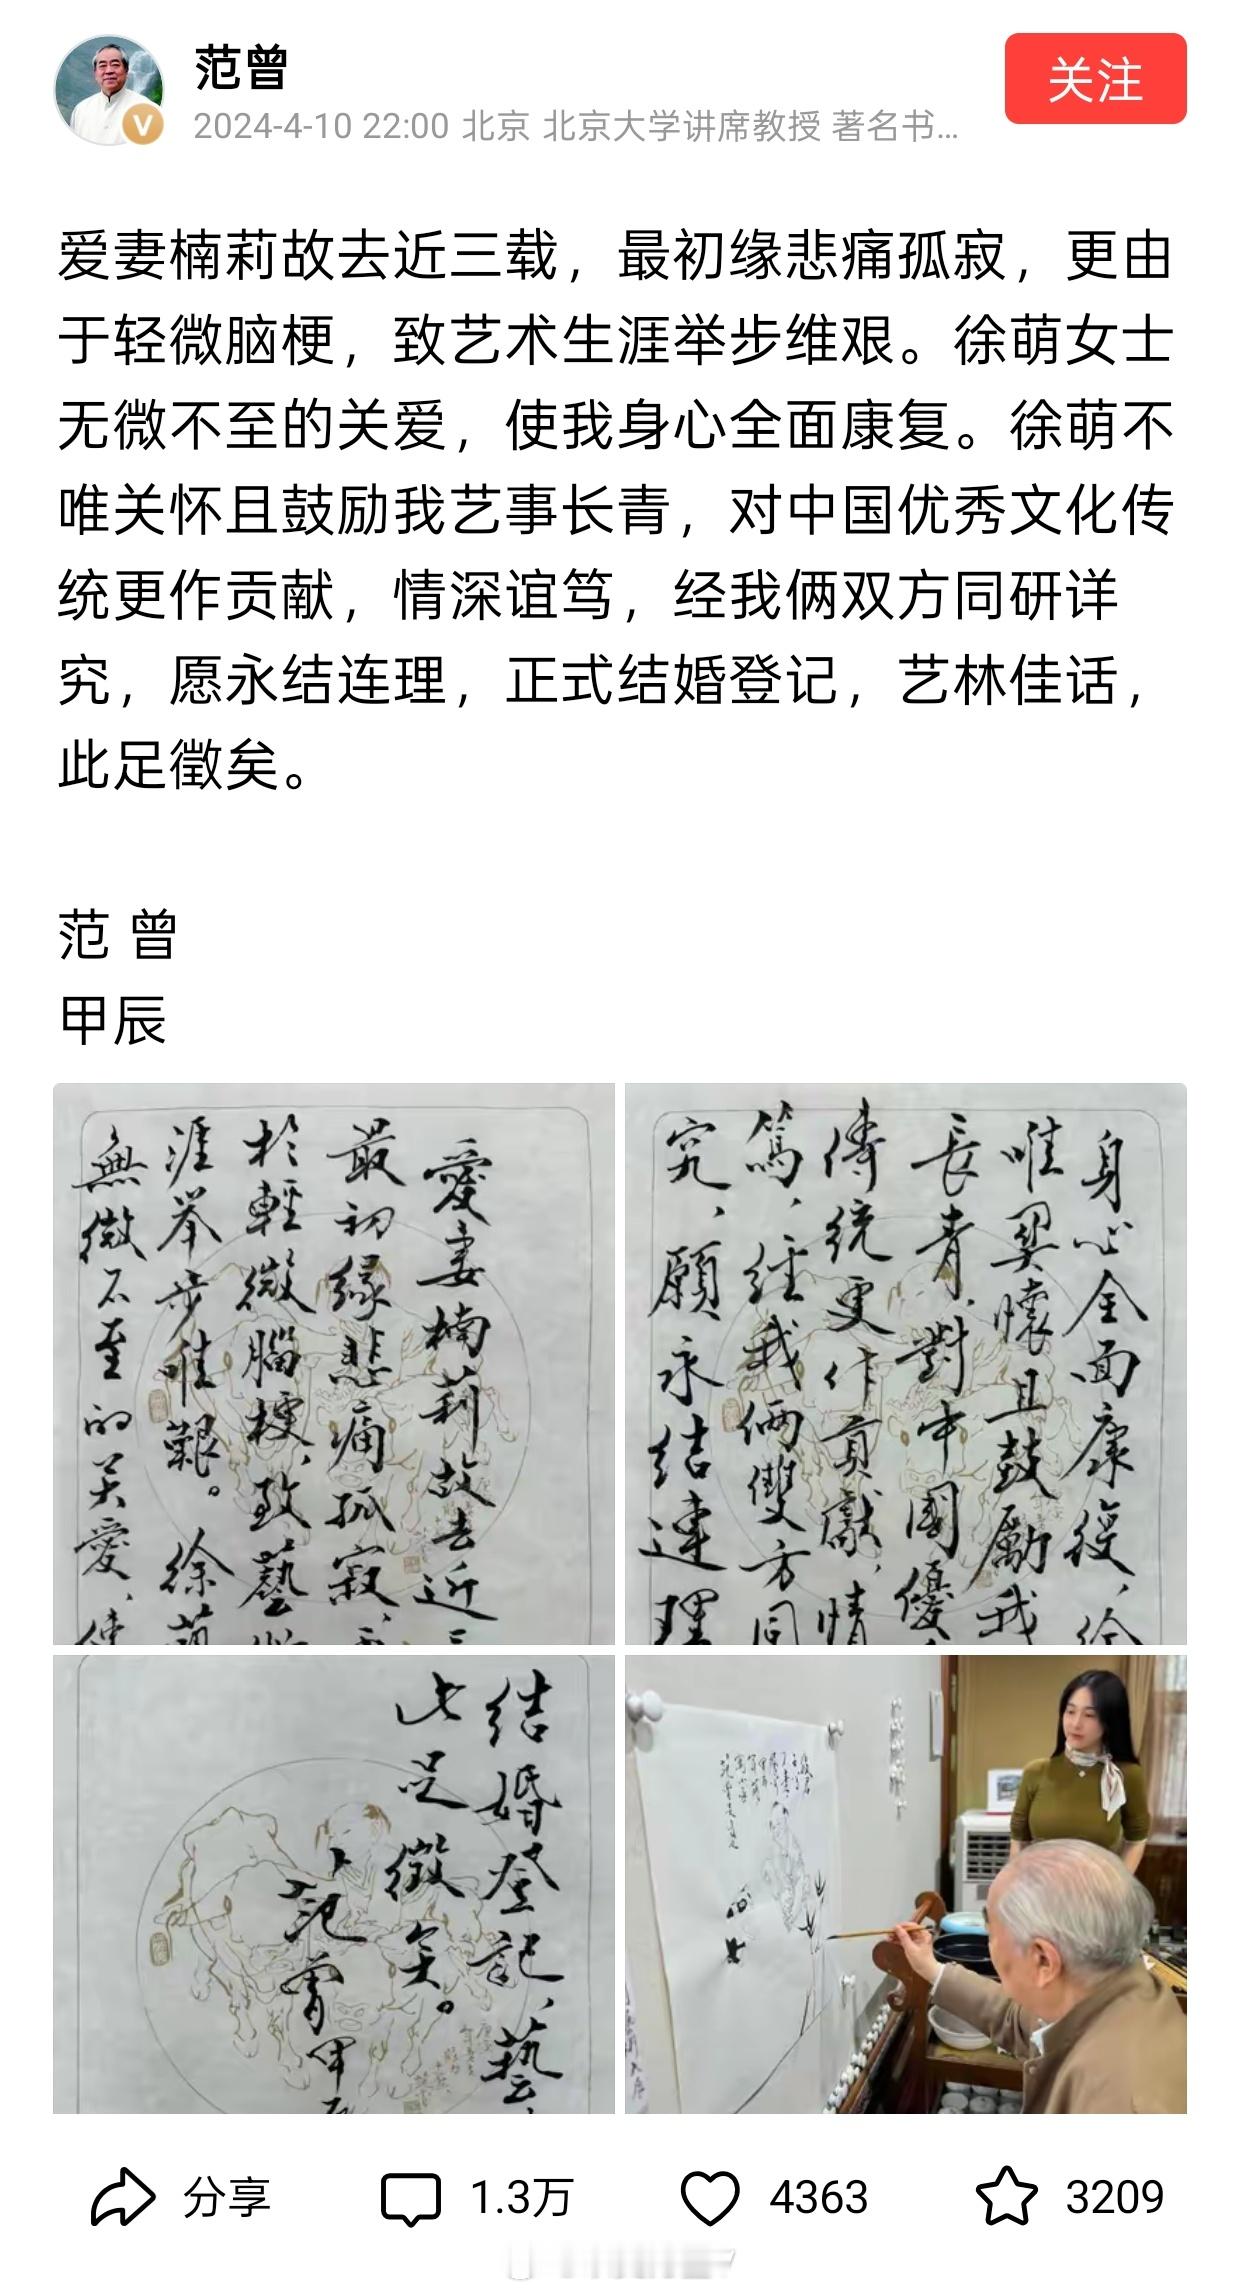 范曾
关注
2024-4-10 22:00 北京 北京大学讲席教授 著名书...
爱妻楠莉故去近三载，最初缘悲痛孤寂，更由
于轻微脑梗，致艺术生涯举步维艰。徐萌女士
无微不至的关爱，使我身心全面康复。徐萌不
唯关怀且鼓励我艺事长青，对中国优秀文化传
统更作贡献，情深谊笃，经我俩双方同研详
究，愿永结连理，正式结婚登记，艺林佳话，
此足徵矣。
范 曾
甲辰
愛妻楠莉故去近三
最初緣悲痛孤寂，
於輕微腦梗，致藝
涯举步唯艱。徐萌
無微不至的关愛，使
身心全面康復，徐
唯関懷且鼓勵我
長青，對中國優
傳統更作貢獻，情
篤，經我俩雙方同
究，願永结連理
结婚登記，藝
此足徵矣。
范曾甲辰
分享
1.3万
4363
3209